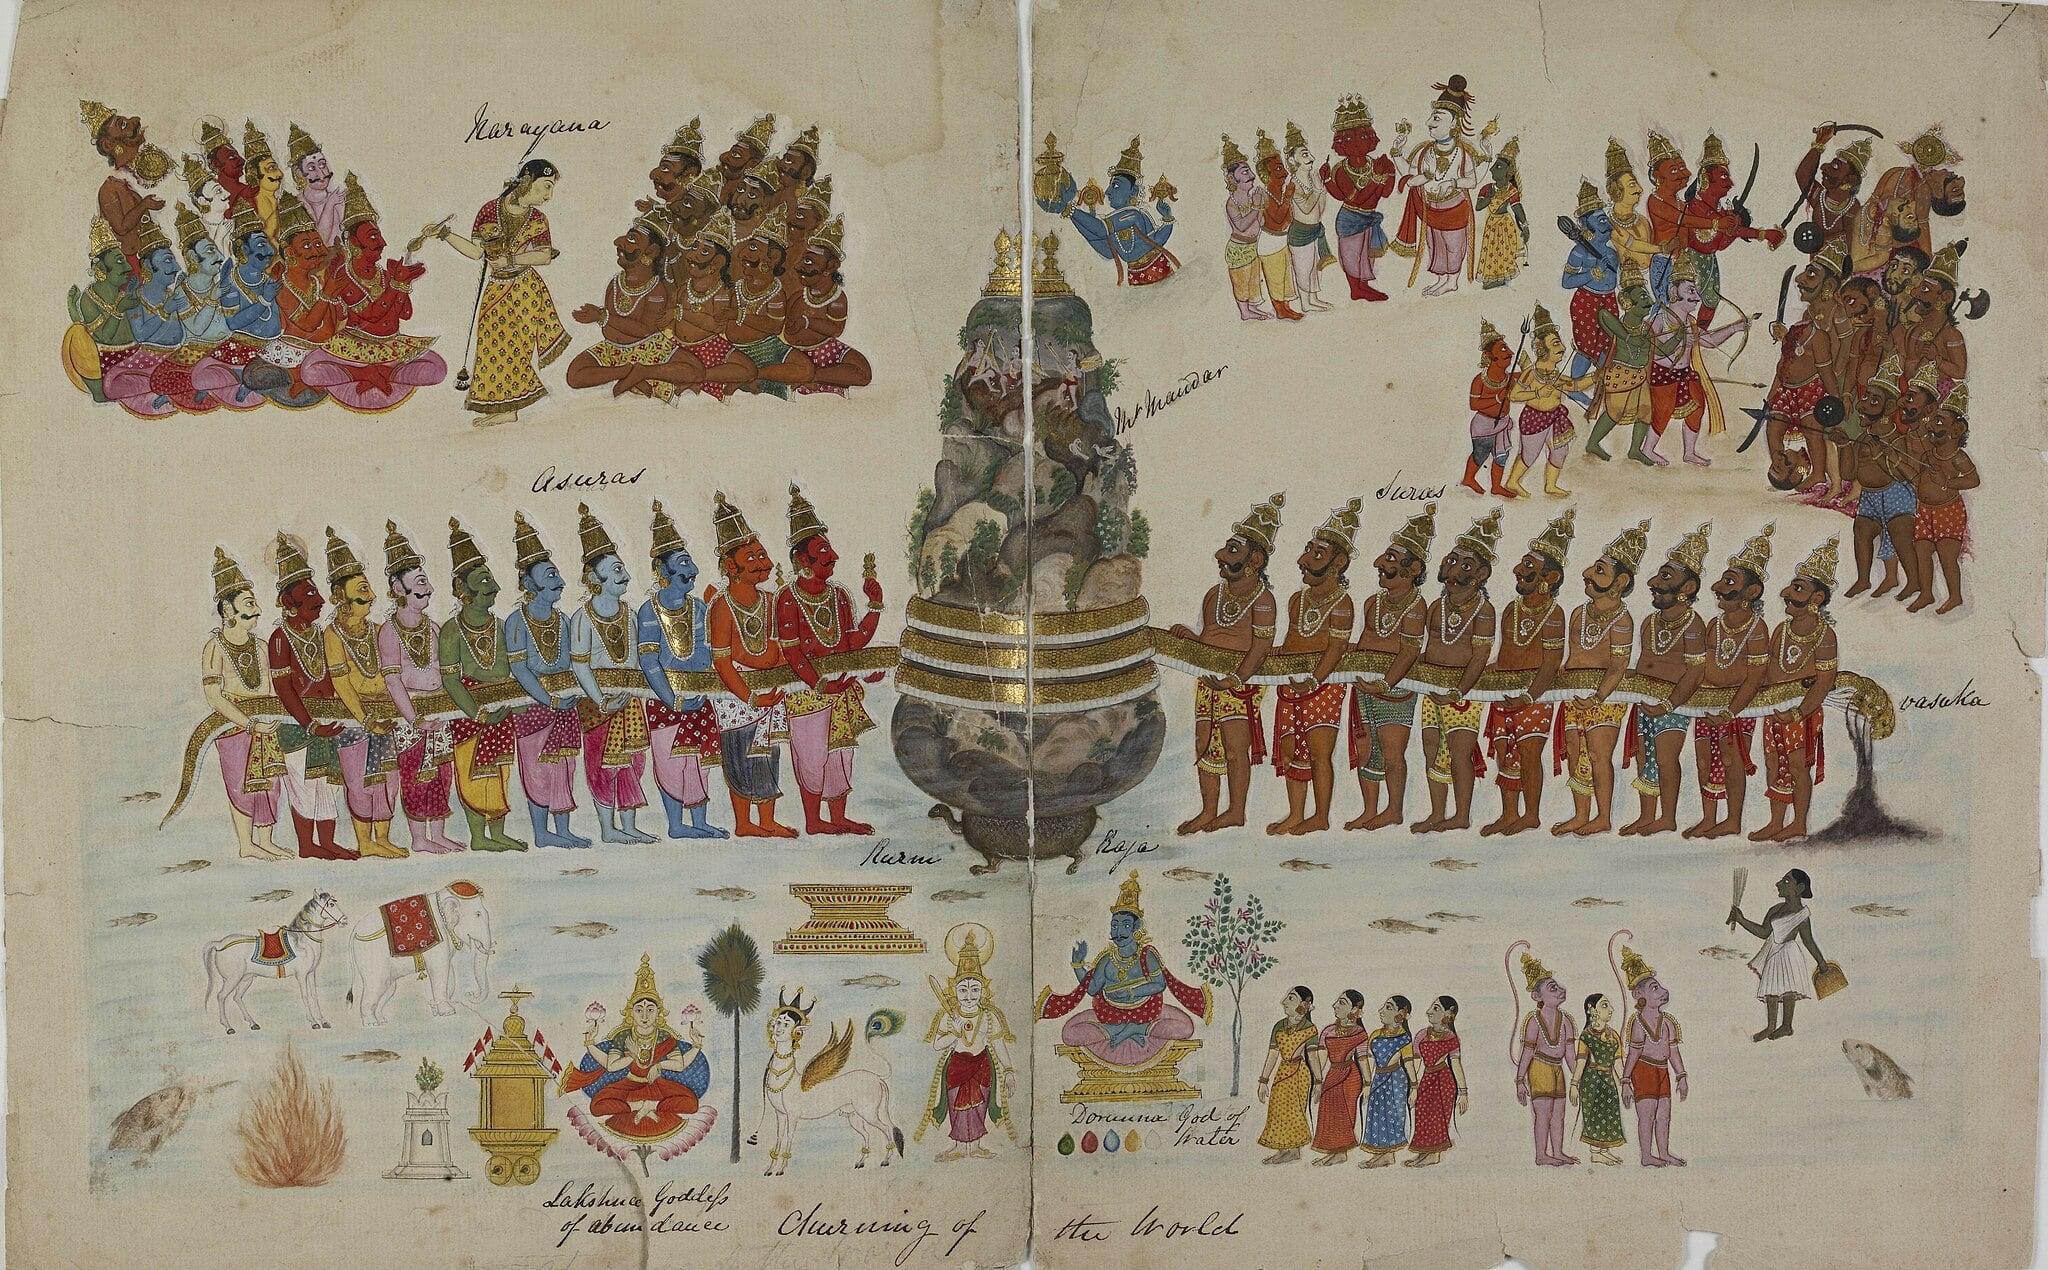 7
Narayana
Mt Mandar
Asuras
Suras
vasuka
Kurm Raja
Dorunna God of
Water
Lakshmee Goddess
of abundance
Churning of the World